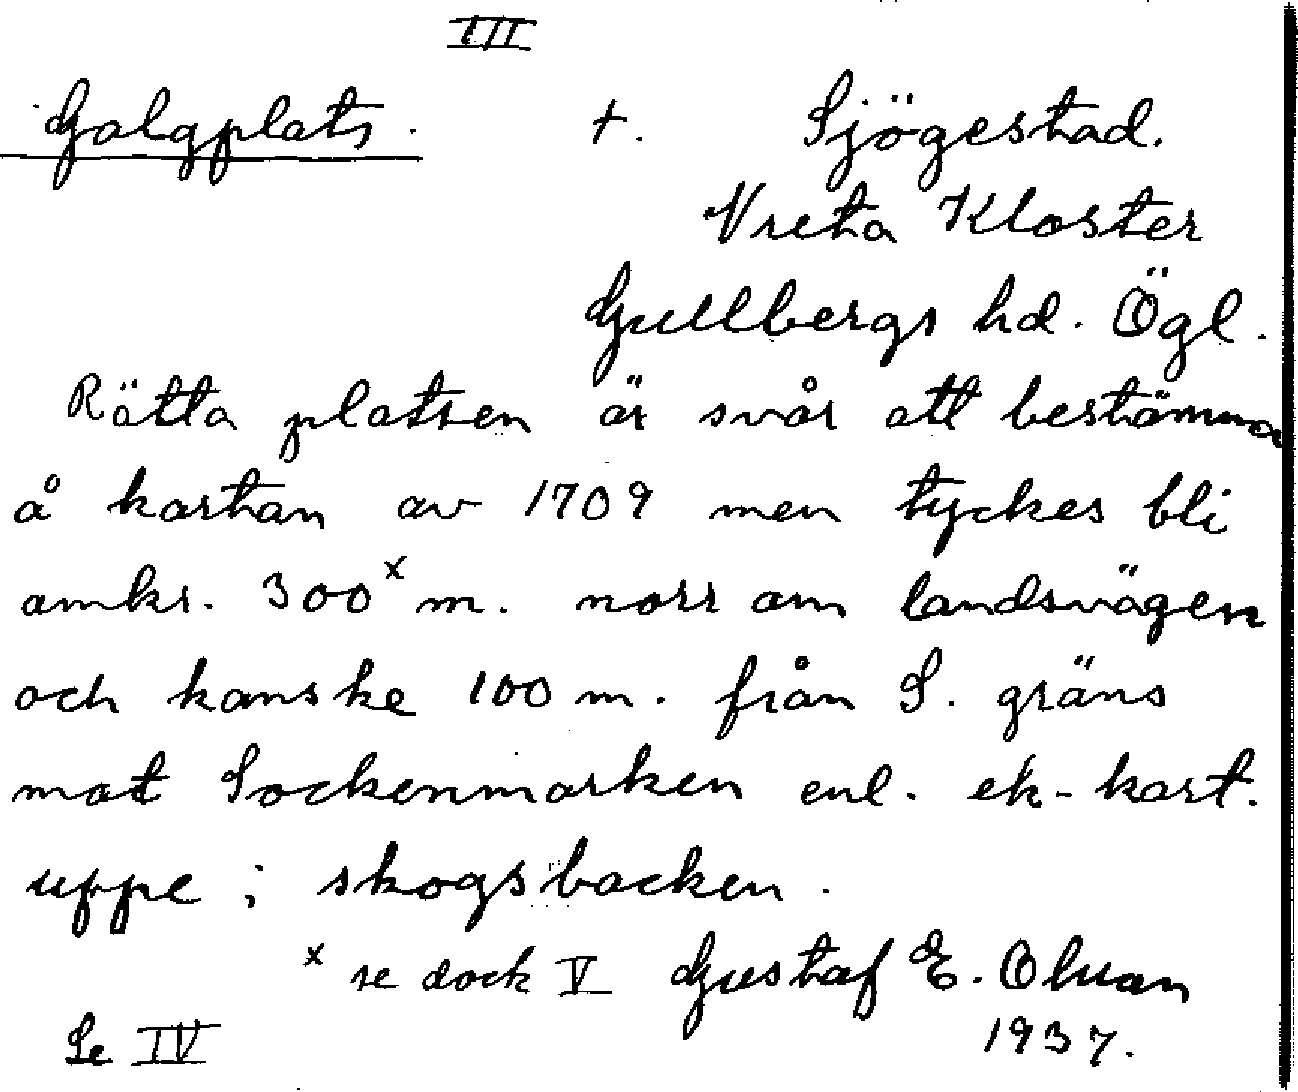 III
Galgplats. +. Sjögestad.
Vreta Kloster
Gullbergs hd. Ögl.
Rätta platsen är svår att bestämma
å kartan av 1709 men tyckes bli
omkr. 300ˣ m. norr om landsvägen
och kanske 100 m. från S. gräns
mot Sockenmarken enl. ek-kart.
uppe i skogsbacken.
ˣ se dock V Gustaf E. Olsson
Se IV 1937.